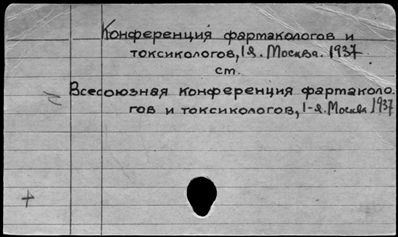 Конференция фартакологов и
токсикологов, 1я. Москва. 1937
ст.
Всесоюзная конференция фартаколо-
гов и токсикологов, 1-я. Москва 1937